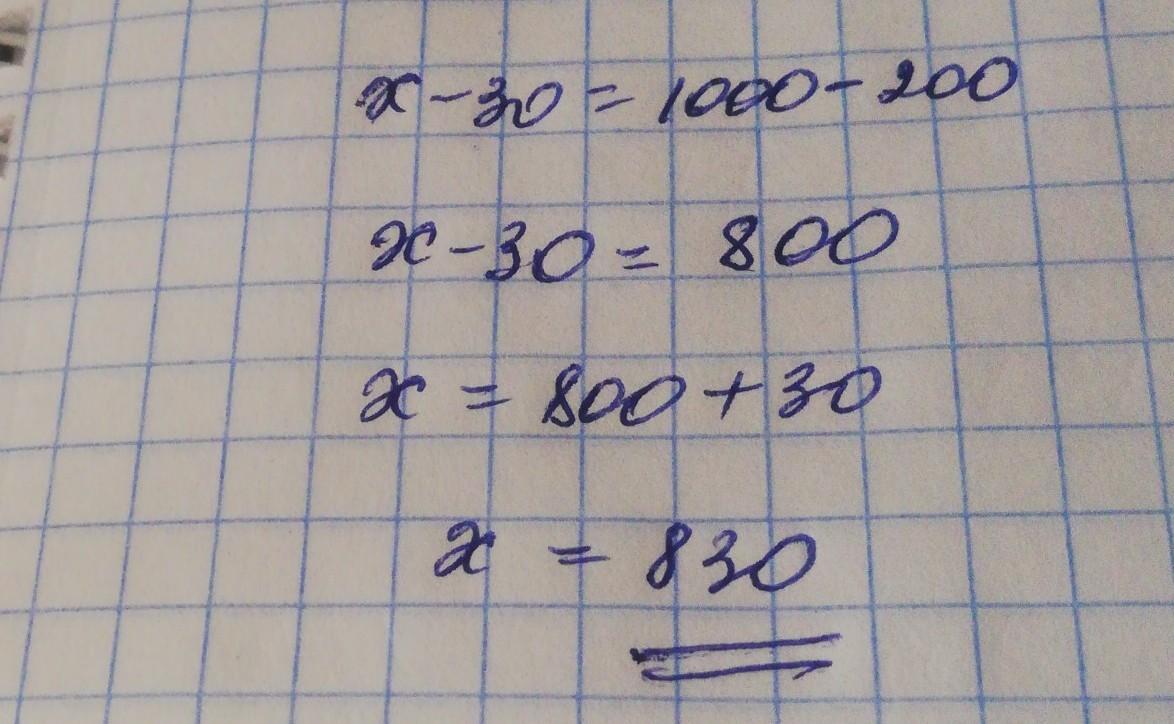 x - 30 = 1000 - 200
x - 30 = 800
x = 800 + 30
x = 830